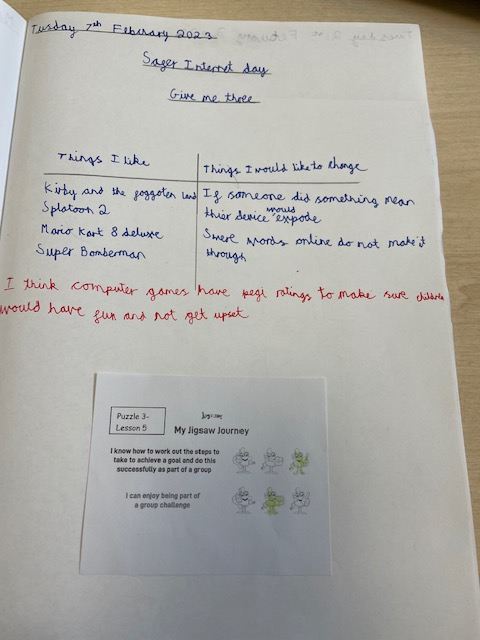 Tusday 7th Febuary 2023
Safer Internet day
Give me three
Things I like
Things I would like to change
Kirby and the foggoten land
Splatoon 2
Mario Kart 8 deluxe
Super Bomberman
If someone did something mean
thier device would expode
Swere words online do not make it
through
I think computer games have pegi ratings to make sure children
would have fun and not get upset
Puzzle 3-
Lesson 5
Jigsaw
My Jigsaw Journey
I know how to work out the steps to
take to achieve a goal and do this
successfully as part of a group
I can enjoy being part of
a group challenge